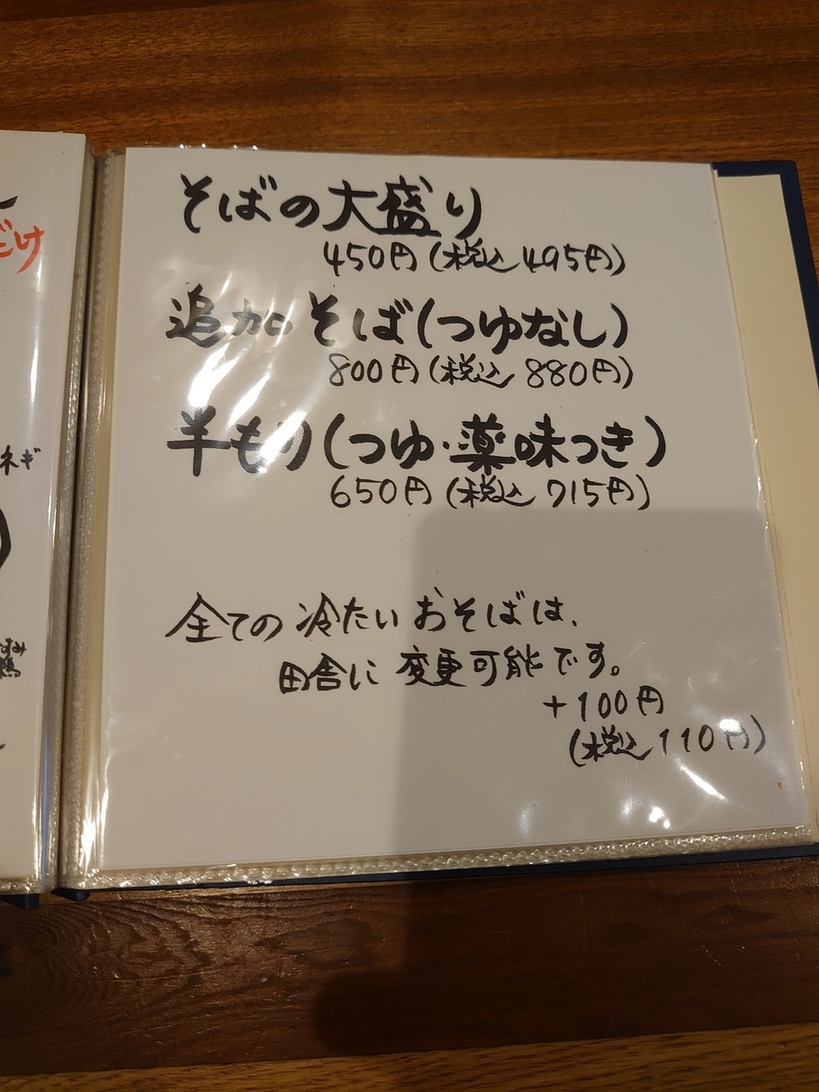 だけ
ネギ
そばの大盛り
450円(税込495円)
追加そば(つゆなし)
800円(税込 880円)
半もり(つゆ・薬味つき)
650円(税込 715円)
全ての冷たいおそばは、
田舎に変更可能です。
+100円
(税込110円)